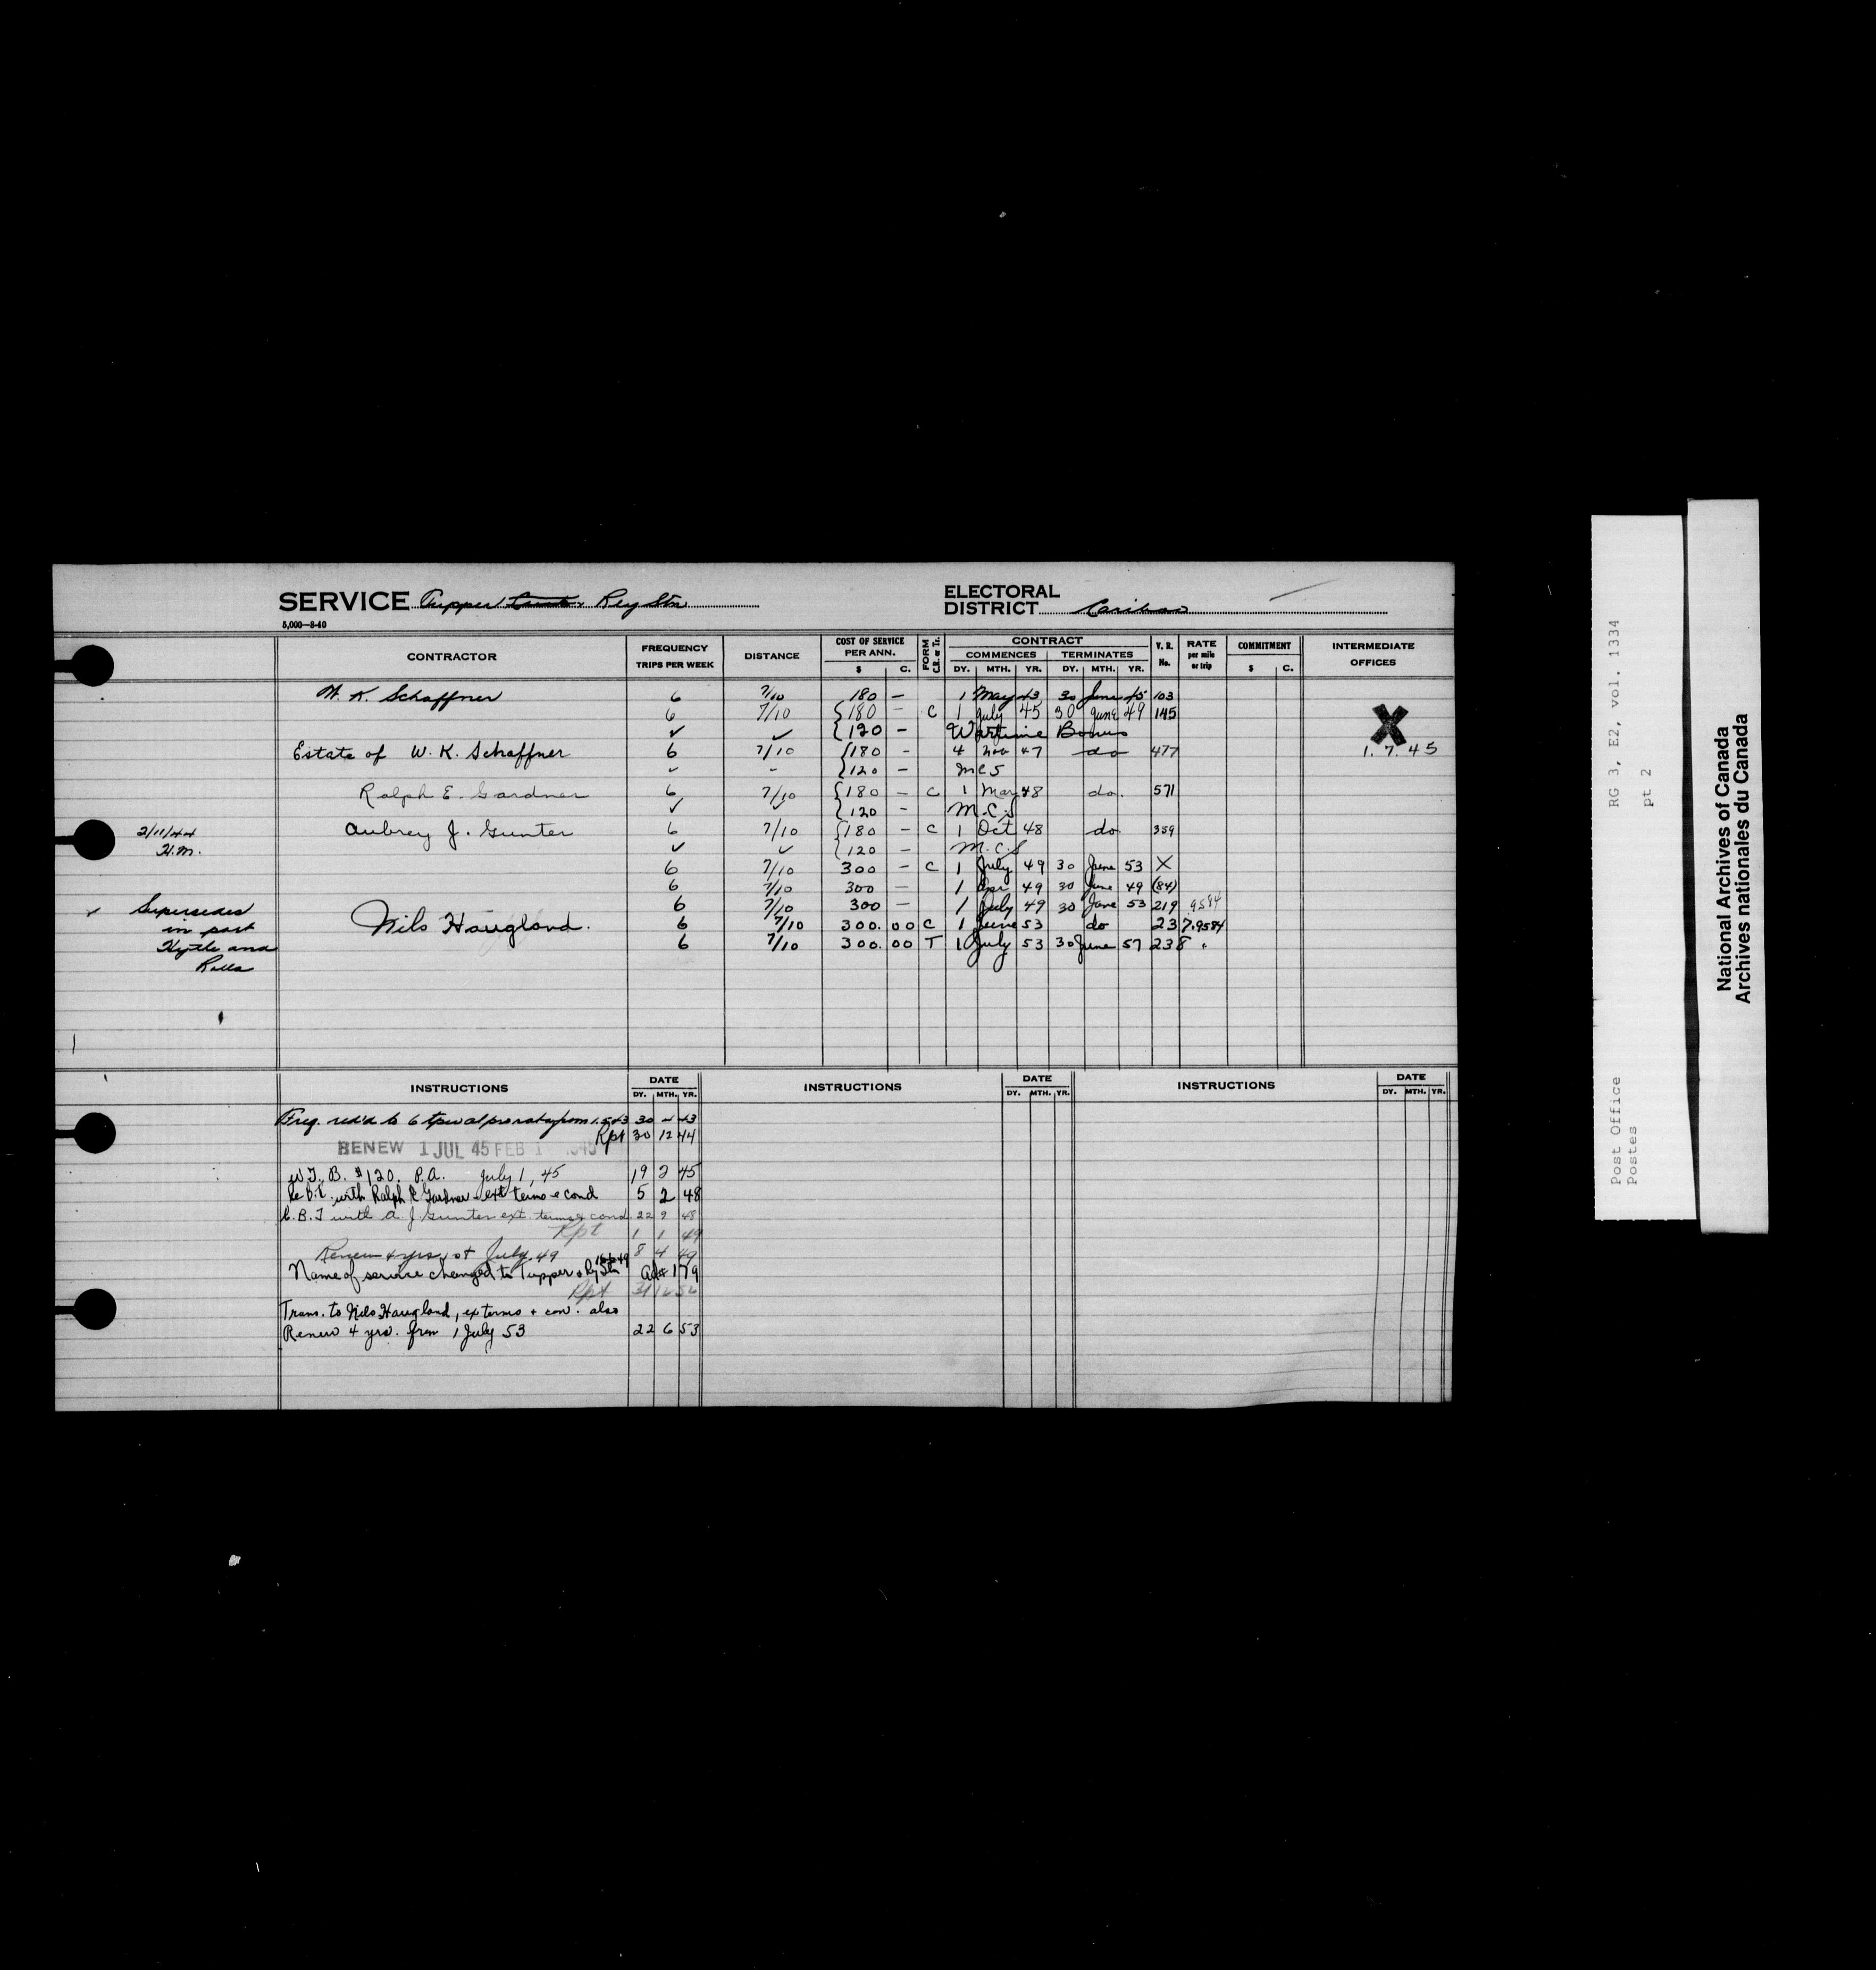 SERVICE Tupper Creek & Rly Stn
ELECTORAL
DISTRICT Cariboo
5,000—8-40
CONTRACTOR FREQUENCY TRIPS PER WEEK DISTANCE COST OF SERVICE PER ANN. $ C. FORM C.R. or Tr. CONTRACT COMMENCES DY. MTH. YR. TERMINATES DY. MTH. YR. V. R. No. RATE per mile or trip COMMITMENT $ C. INTERMEDIATE OFFICES
W. K. Schaffner 6 7/10 180 — 1 May 43 30 June 45 103
6 7/10 {180 — C 1 July 45 30 June 49 145 X
✓ ✓ {120 — Wartime Bonus
Estate of W. K. Schaffner 6 7/10 {180 — 4 Nov 47 do 477 1. 7. 45
✓ - {120 — M C S
Ralph E. Gardner 6 7/10 {180 — C 1 Mar 48 do. 571
✓ {120 — M.C.S
2/11/44 Aubrey J. Gunter 6 7/10 {180 — C 1 Oct 48 do. 359
H.M. ✓ ✓ {120 — M.C.S
6 7/10 300 — C 1 July 49 30 June 53 X
6 7/10 300 — 1 Apr 49 30 June 49 (84)
✓ Supersedes 6 7/10 300 — 1 July 49 30 June 53 219 .9584
in part Nils Haugland. 6 7/10 300. 00 C 1 June 53 do 237 .9584
Hythe and 6 7/10 300. 00 T 1 July 53 30 June 57 238 "
Rolla
INSTRUCTIONS DATE DY. MTH. YR. INSTRUCTIONS DATE DY. MTH. YR. INSTRUCTIONS DATE DY. MTH. YR.
Freq. red'd to 6 tpw at pro rata from 1.5.43 30 4 43
Rpt 30 12 44
RENEW 1 JUL 45 FEB 1
W.T.B. $120. P.A. July 1, 45 19 2 45
with Ralph E Gardner ext terms & cond 5 2 48
C.B.T with A. J Gunter ext. terms & cond. 22 9 48
Rpt 1 1 49
Renew 4 yrs. 1st July 49 8 4 49
Name of service changed to Tupper & Rly Stn
Rpt 31 12 52
Trans. to Nils Haugland, ex terms + con. also
Renew 4 yrs. from 1 July 53 22 6 53
Post Office RG 3, E2, vol. 1334
Postes pt 2
National Archives of Canada
Archives nationales du Canada